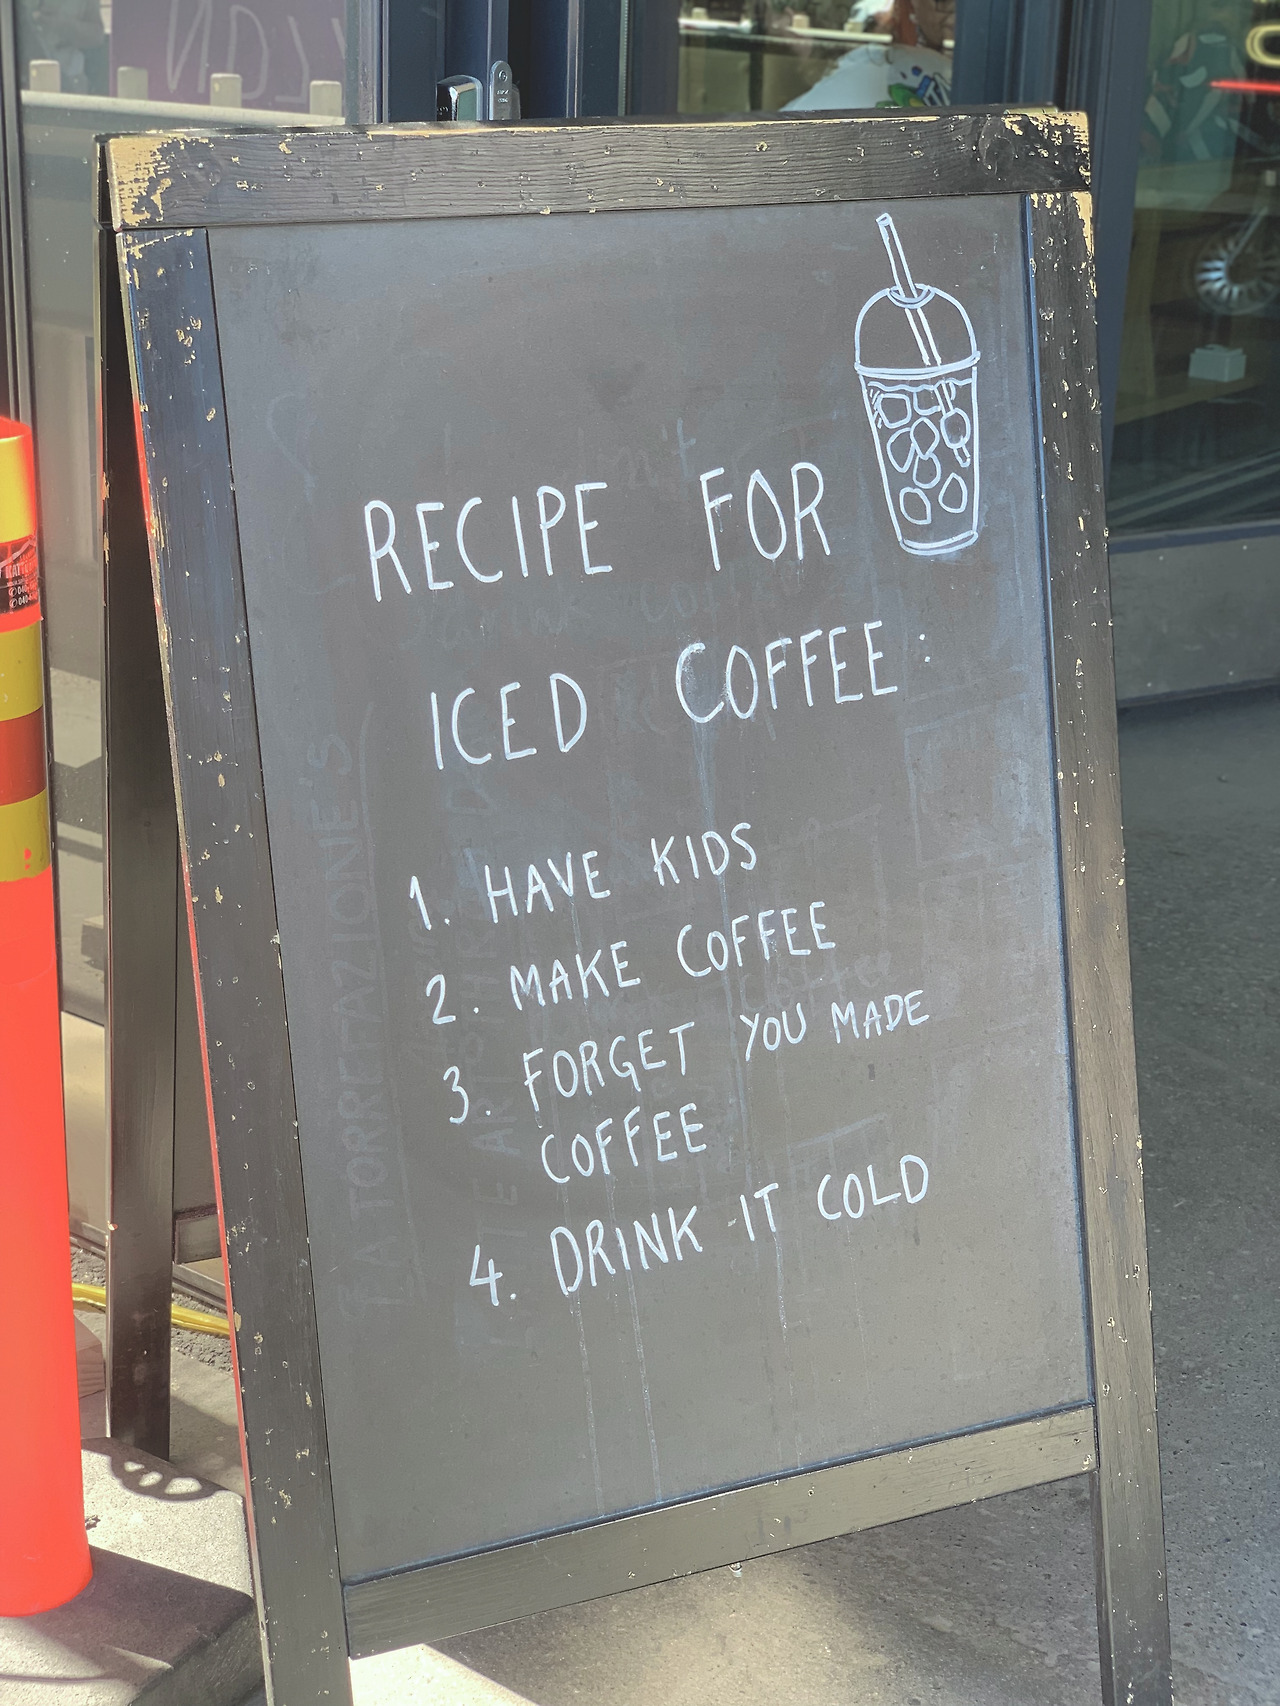 RECIPE FOR
ICED COFFEE:
1. HAVE KIDS
2. MAKE COFFEE
3. FORGET YOU MADE
COFFEE
4. DRINK IT COLD
LA TORREFAZIONE'S